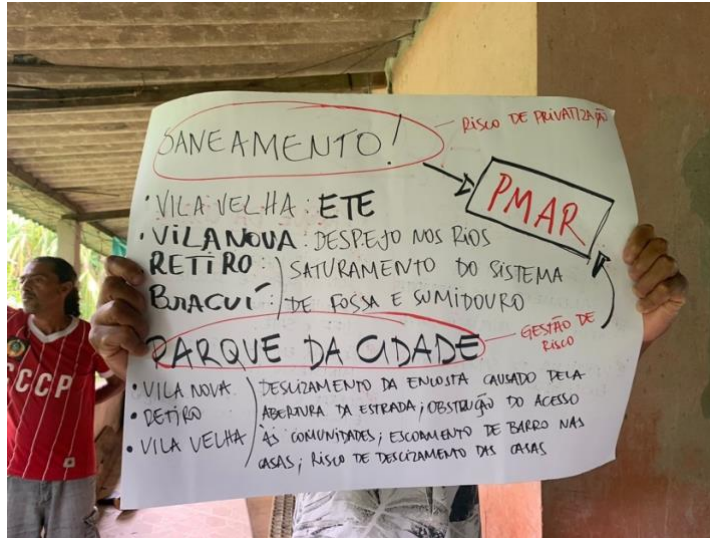 SANEAMENTO!
RISCO DE PRIVATIZAÇÃO
PMAR
• VILA VELHA: ETE
• VILA NOVA: DESPEJO NOS RIOS
RETIRO: SATURAMENTO DO SISTEMA
BRACUÍ: DE FOSSA E SUMIDOURO
PARQUE DA CIDADE
GESTÃO DE
RISCO
• VILA NOVA DESLIZAMENTO DA ENCOSTA CAUSADO PELA
• RETIRO ABERTURA DA ESTRADA; OBSTRUÇÃO DO ACESSO
• VILA VELHA ÀS COMUNIDADES; ESCOAMENTO DE BARRO NAS
CASAS; RISCO DE DESLIZAMENTO DAS CASAS
CCCP